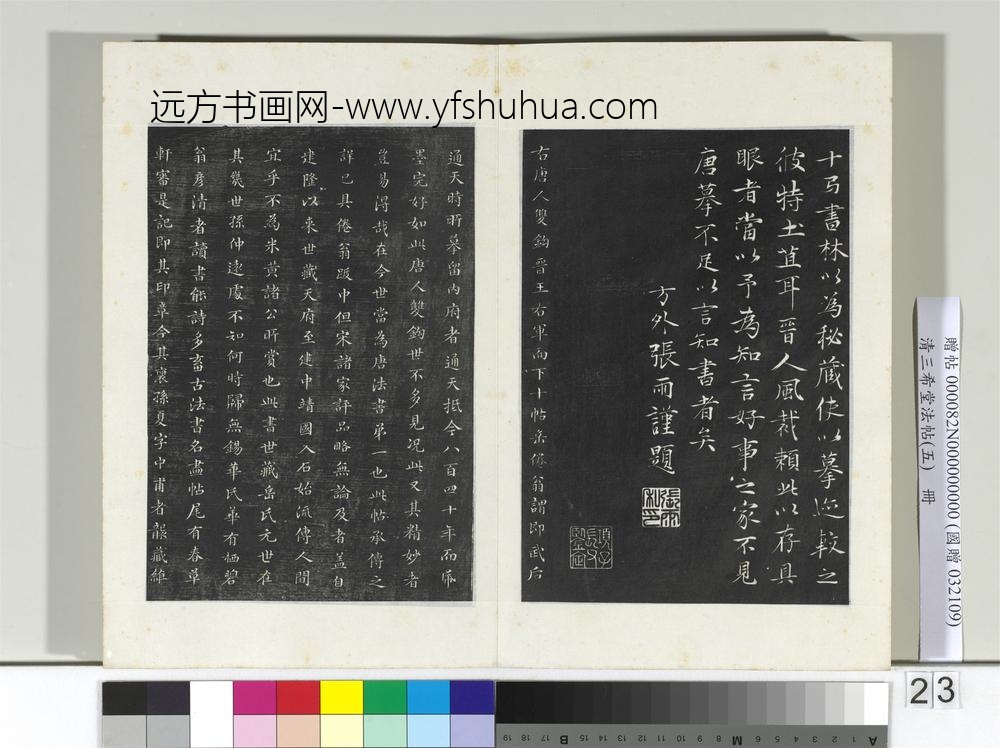 远方书画网-www.yfshuhua.com
十馬書林以為秘藏使以摹迹較之
彼特土苴耳晉人風裁賴此以存具
眼者當以予為知言好事之家不見
唐摹不足以言知書者矣
方外張雨謹題
張雨私印
項子長父鑒定
右唐人雙鈎晉王右軍而下十帖岳倦翁謂即武后
通天時所摹留內府者通天抵今八百四十年而紙
墨完好如此唐人雙鈎世不多見況此又其精妙者
豈易得哉在今世當為唐法書第一也此帖承傳之
詳已具倦翁跋中但宋諸家評品略無論及者蓋自
建隆以來世藏天府至建中靖國入石始流傳人間
宜乎不為米黃諸公所賞也此書世藏岳氏元世在
其幾世孫仲遠處不知何時歸無錫華氏華有栖碧
翁彥清者讀書能詩多畜古法書名畫帖尾有春草
軒審是記即其印章今其裔孫夏字中甫者襲藏維
贈帖 000082N000000000 (國贈 032109)
清三希堂法帖(五) 冊
23
A 1 2 3 4 5 6 M 8 9 10 11 12 13 14 15 B 17 18 19